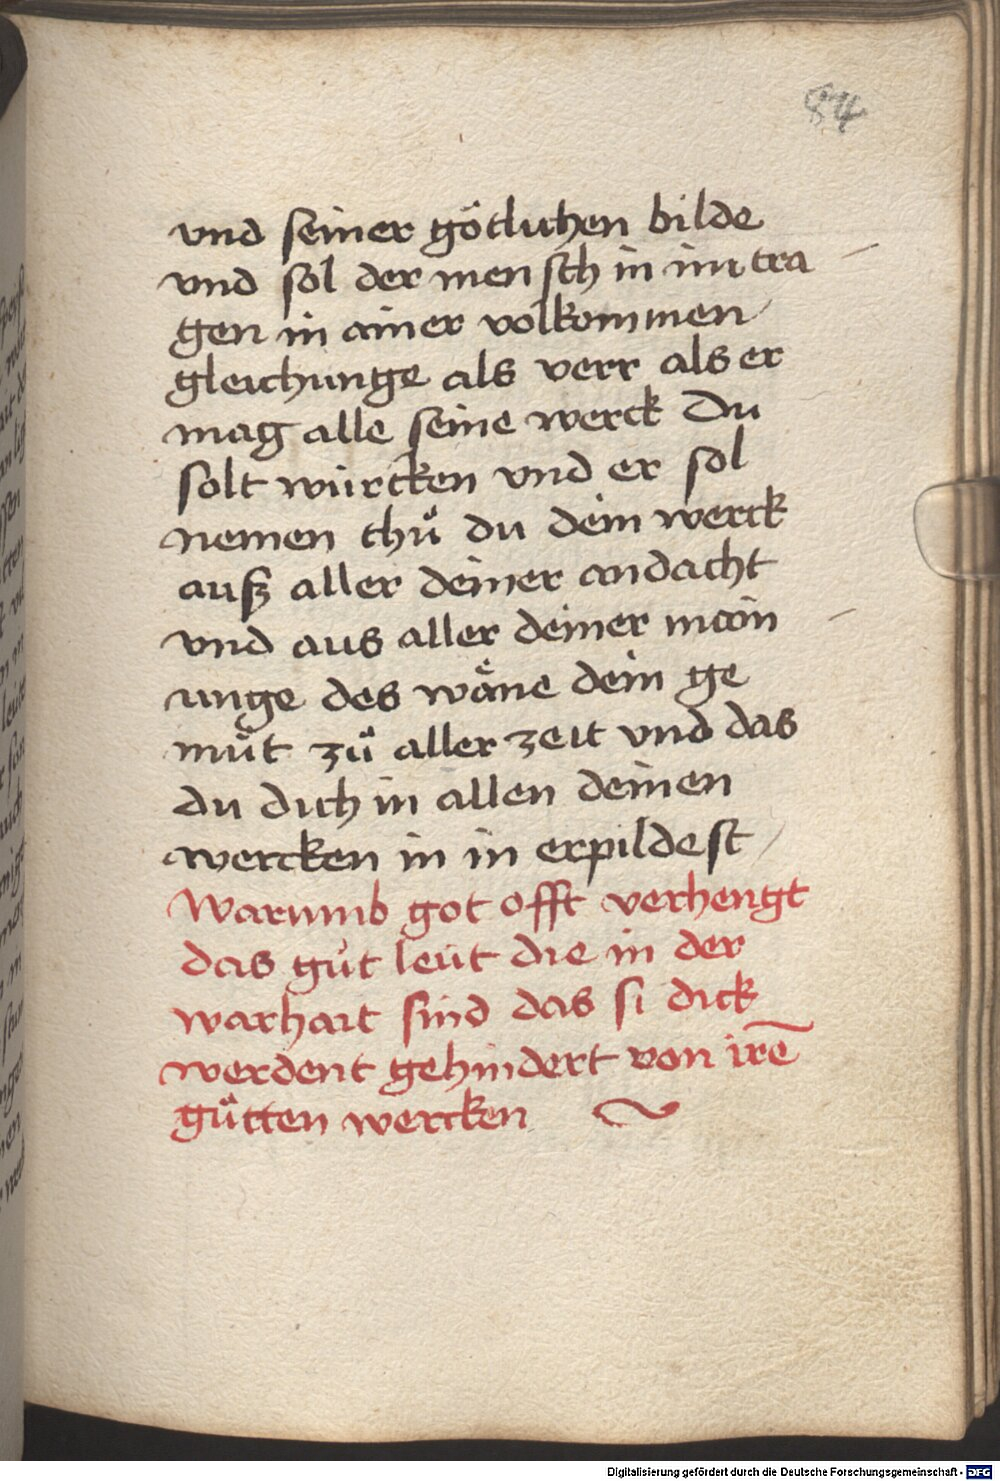 84
vnd seiner götlichen bilde
vnd sol der mensch in im tra
gen in ainer volkommen
gleichunge als verr als er
mag alle seine werck Du
solt würcken vnd er sol
nemen thuͦ du dein werck
auß aller deiner andacht
vnd aus aller deiner main
unge des wäne dein ge
muͤt zuͦ aller zeit vnd das
du dich in allen deinen
wercken in in erpildest
Warumb got offt verhengt
das guͦt leüt die in der
warhait sind das si dick
werdent gehindert von irē
guͦtten wercken
Digitalisierung gefördert durch die Deutsche Forschungsgemeinschaft - DFG